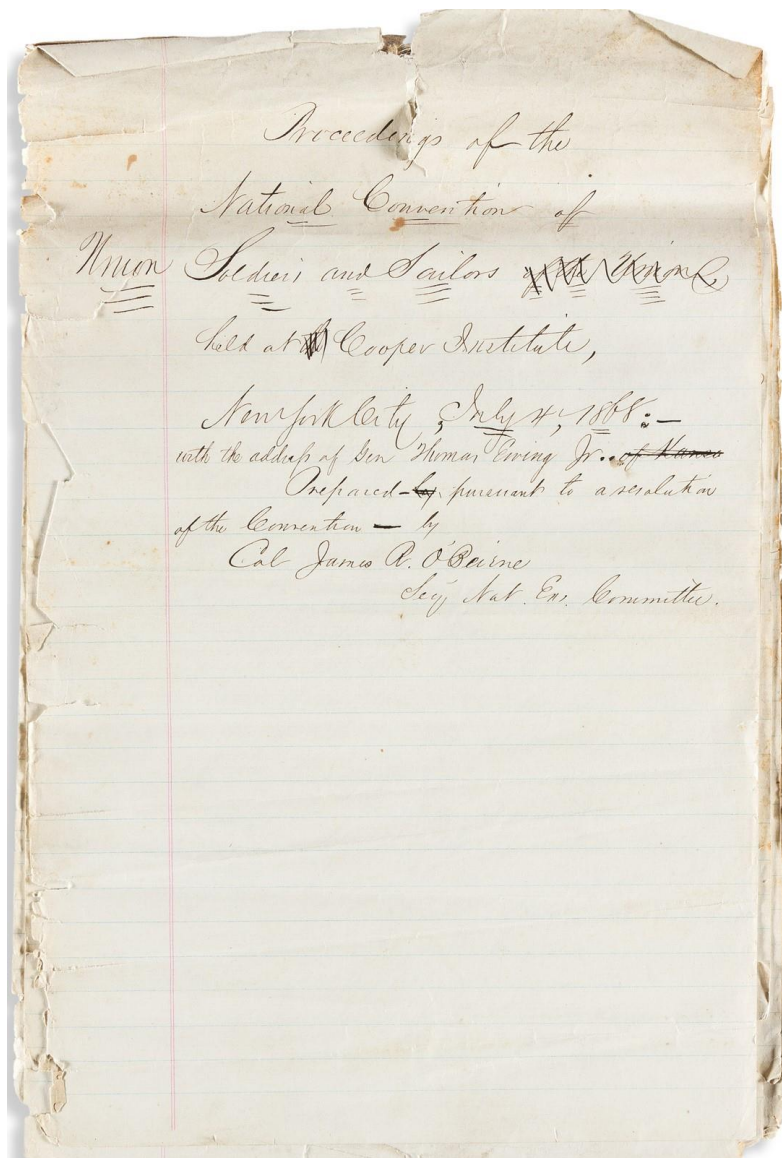 Proceedings of the
National Convention of
Union Soldiers and Sailors of the Union
held at Cooper Institute,
New York City, July 4, 1868:—
with the address of Gen Thomas Ewing Jr. of Kansa
Prepared by pursuant to a resolution
of the Convention — by
Col James R. O'Beirne
Secy Nat. Exs. Committee.